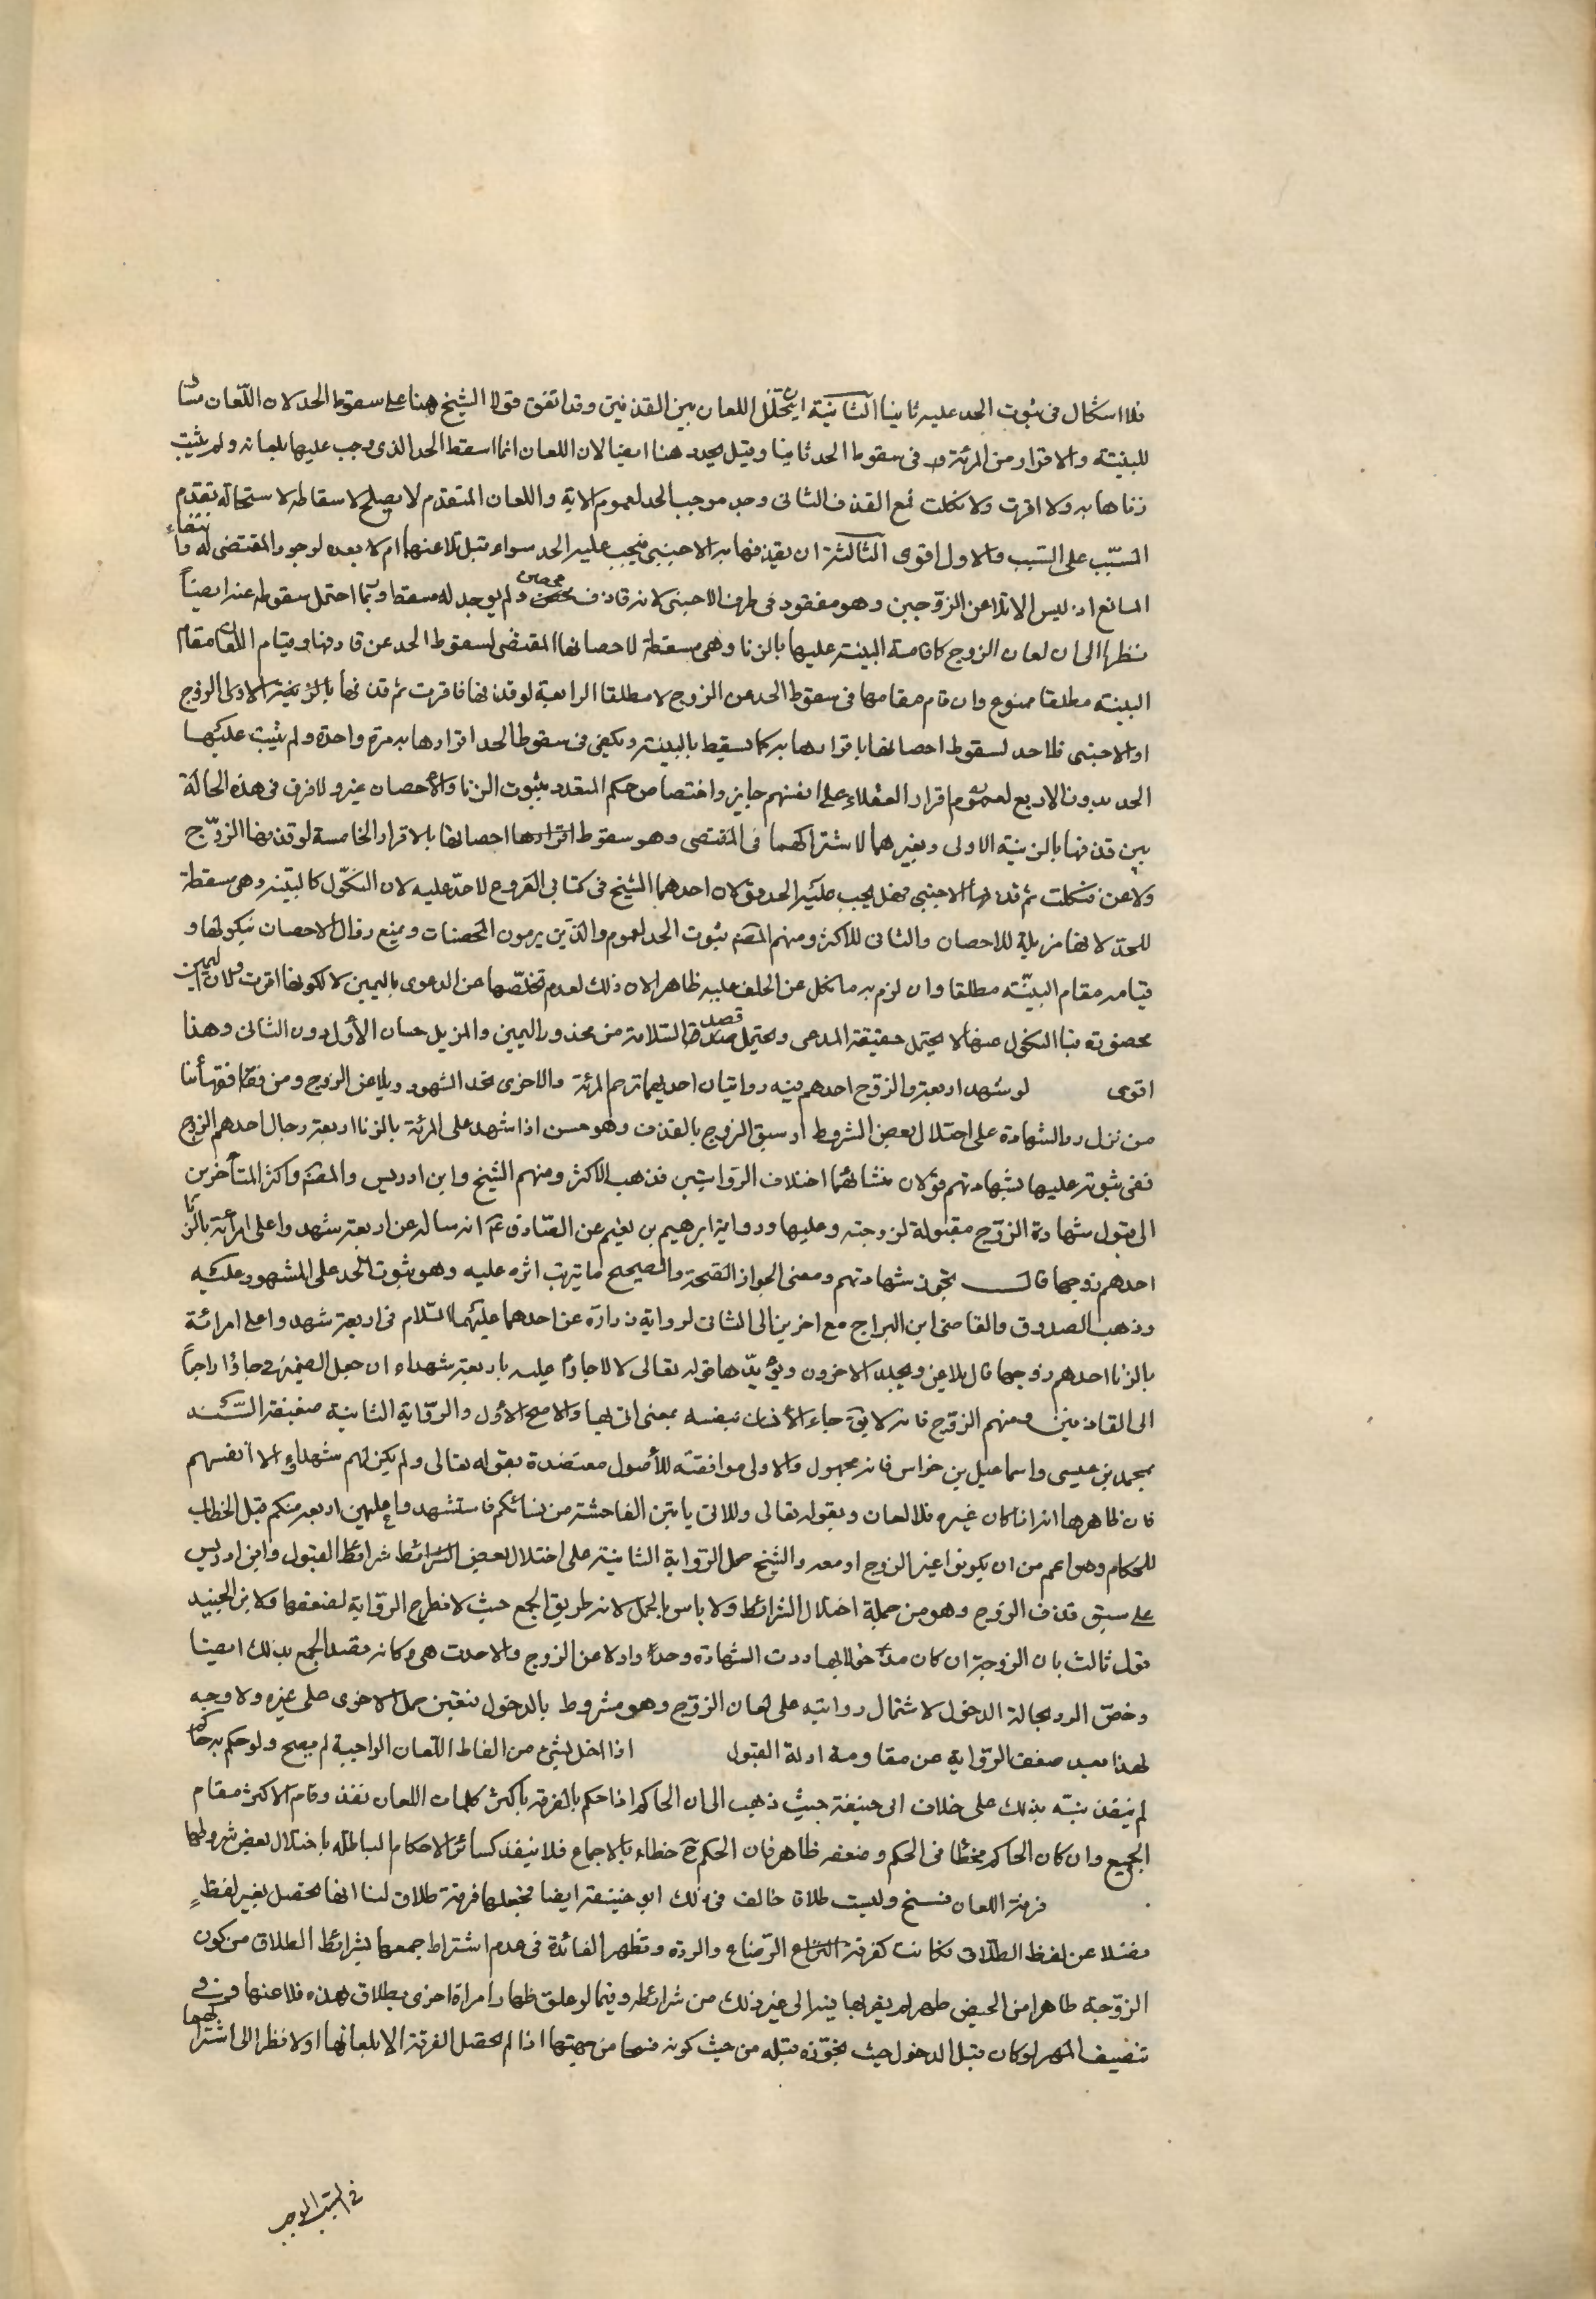 فلا اشكال فى ثبوت الحد عليه ثانيا الثانية ان يتخلل اللعان بين القذفين وقد اتفق قولا الشيخ هنا على سقوط الحد لان اللعان مساو
للبينة والاقرار من المرئة و فى سقوط الحد ثانيا وقيل يحد هنا ايضا لان اللعان انما اسقط الحد الذى وجب عليها بلعانه ولم يثبت
زناها به ولا اقرت ولا نكلت فمع القذف الثانى وجد موجب الحد لعموم الاية واللعان المتقدم لا يصلح لاسقاطه لاستحالة تقدم
المسبب على السبب والاول اقوى الثالثة ان يقذفها به الاجنبى فيجب عليه الحد سواء قبل تلاعنهما ام لا بعده لوجود المقتضى له وانتفاء
المانع اذ ليس الا تلاعن الزوجين وهو مفقود فى طرف الاجنبى لانه قاذف محصن ولم يوجد له مسقط وربما احتمل سقوطه عنه ايضاً
نظرا الى ان لعان الزوج كاقامة البينة عليها بالزنا وهى مسقطة لاحصانها المقتضى لسقوط الحد عن قاذفها وقيام اللعان مقام
البينة مطلقا ممنوع وان قام مقامها فى سقوط الحد عن الزوج لا مطلقا الرابعة لو قذفها فاقرت ثم قذفها بالزنية الاولى الزوج
او الاجنبى فلا حد لسقوط احصانها باقرارها به كما يسقط بالبينة ويكفى فى سقوط الحد اقرارها به مرة واحدة ولم يثبت عليها
الحد بدون الاربع لعموم اقرار العقلاء على انفسهم جايز واختصاص حكم المتعدد بثبوت الزنا والاحصان غيره ولا فرق فى هذه الحالة
بين قذفها بالزنية الاولى وبغيرهما لاشتراكهما فى المقتضى وهو سقوط اقرارها احصانها بالاقرار الخامسة لو قذفها الزوج
ولاعن فنكلت ثم قذفها الاجنبى فهل يجب عليه الحد قولان احدهما للشيخ فى كتابى الفروع لا حد عليه لان النكول كالبينة وهى مسقطة
للحد لانها مزيلة للاحصان والثانى للاكثر ومنهم المصنف ثبوت الحد لعموم والذين يرمون المحصنات ويمنع زوال الاحصان بنكولها و
قيامه مقام البينة مطلقا وان لزم به ما نكل عن الحلف عليه ظاهرا لان ذلك لعدم تخلصها من الدعوى باليمين لا لكونها اقرت ولان اليمين
محصورة فيها النكول عنها لا يحتمل حقيقة المدعى ويحتمل قصد السلامة من محذور اليمين والمزيل حسان الأول دون الثانى وهذا
اقوى لو شهد اربعة والزوج احدهم فيه روايتان احديهما ترجم المرئة والاخرى تحد الشهود ويلاعن الزوج ومن فقهائنا
من نزل رد الشهادة على اختلال بعض الشروط او سبق الزوج بالقذف وهو حسن اذا شهد على المرئة بالزنا اربعة رجال احدهم الزوج
ففى ثبوته عليها بشهادتهم قولان منشائهما اختلاف الروايتين فذهب الاكثر ومنهم الشيخ وابن ادريس والمصنف واكثر المتأخرين
الى قبول شهادة الزوج مقبولة لزوجته وعليها ورواية ابرهيم بن نعيم عن الصادق ع انه ساله عن اربعة شهدوا على امرأة بالزنا
احدهم زوجها قال تجوز شهادتهم ومعنى الجواز الصحة والصحيح ما يترتب اثره عليه وهو ثبوت الحد على المشهود عليه
وذهب الصدوق والقاضى ابن البراج مع اخرين الى الثانى لرواية زرارة عن احدهما عليهما السلام فى اربعة شهدوا على امرائة
بالزنا احدهم زوجها قال يلاعن ويجلد الاخرون ويؤيدها قوله تعالى لولا جاؤا عليه باربعة شهداء ان جعل الضمير فى جاؤا راجعاً
الى القاذفين ومنهم الزوج فانه لا يق جاء الانسان بنفسه بمعنى اتى بها والاصح الأول والرواية الثانية ضعيفة السند
بمحمد بن عيسى واسماعيل بن خراس فانه مجهول والاولى موافقته للأصول معتضدة بقوله تعالى ولم يكن لهم شهداء الا انفسهم
فان ظاهرها انه اذا كان غيره فلا لعان وبقوله تعالى واللاتى ياتين الفاحشة من نسائكم فاستشهدوا عليهن اربعة منكم قبل الخطاب
للحكام وهو اعم من ان يكونوا غير الزوج او معه والشيخ حمل الرواية الثانية على اختلال بعض الشرائط شرائط القبول وابن ادريس
على سبق قذف الزوج وهو من جملة اختلال الشرائط ولا باس بالحمل لانه طريق الجمع حيث لا نطرح الرواية لضعفها ولابن الجنيد
قول ثالث بان الزوجة ان كان مدخولا بها ردت الشهادة وحدوا ولاعن الزوج والا حدت هى وكانه قصد الجمع بذلك ايضا
وخص الرد بحالة الدخول لاشتمال روايته على لعان الزوج وهو مشروط بالدخول فتعين حمل الاخرى على غيره ولا وجه
لهذا بعد ضعف الرواية عن مقاومة ادلة القبول اذا اخل بشئ من الفاظ اللعان الواجبة لم يصح ولو حكم به حاكم
لم ينفذ نبه بذلك على خلاف ابى حنيفة حيث ذهب الى ان الحاكم اذا حكم بالفرقة باكثر كلمات اللعان نفذ وقام الاكثر مقام
الجميع وان كان الحاكم مخطأ فى الحكم وضعفه ظاهر فان الحكم ح خطاء بالاجماع فلا ينفذ كسائر الاحكام الباطله باختلال بعض شروطها
فرقة اللعان فسخ وليست طلاقا خالف فى ذلك ابو حنيفة ايضا فجعلها فرقة طلاق لنا انها تحصل بغير لفظٍ
فضلا عن لفظ الطلاق فكانت كفرقة الرضاع والردة وتظهر الفائدة فى عدم اشتراط جمعها بشرائط الطلاق من كون
الزوجة طاهرا من الحيض طهرا لم يقربها فيه الى غير ذلك من شرائطه وفيما لو علق ظهار امراة اخرى بطلاق هذه فلاعنها وفى
تنصيف المهر لو كان قبل الدخول حيث نجوزه قبله من حيث كونه فسخا من جهتها اذا لم تحصل الفرقة الا بلعانها اولا نظرا الى اشتراكهما
فى السبب الموجب